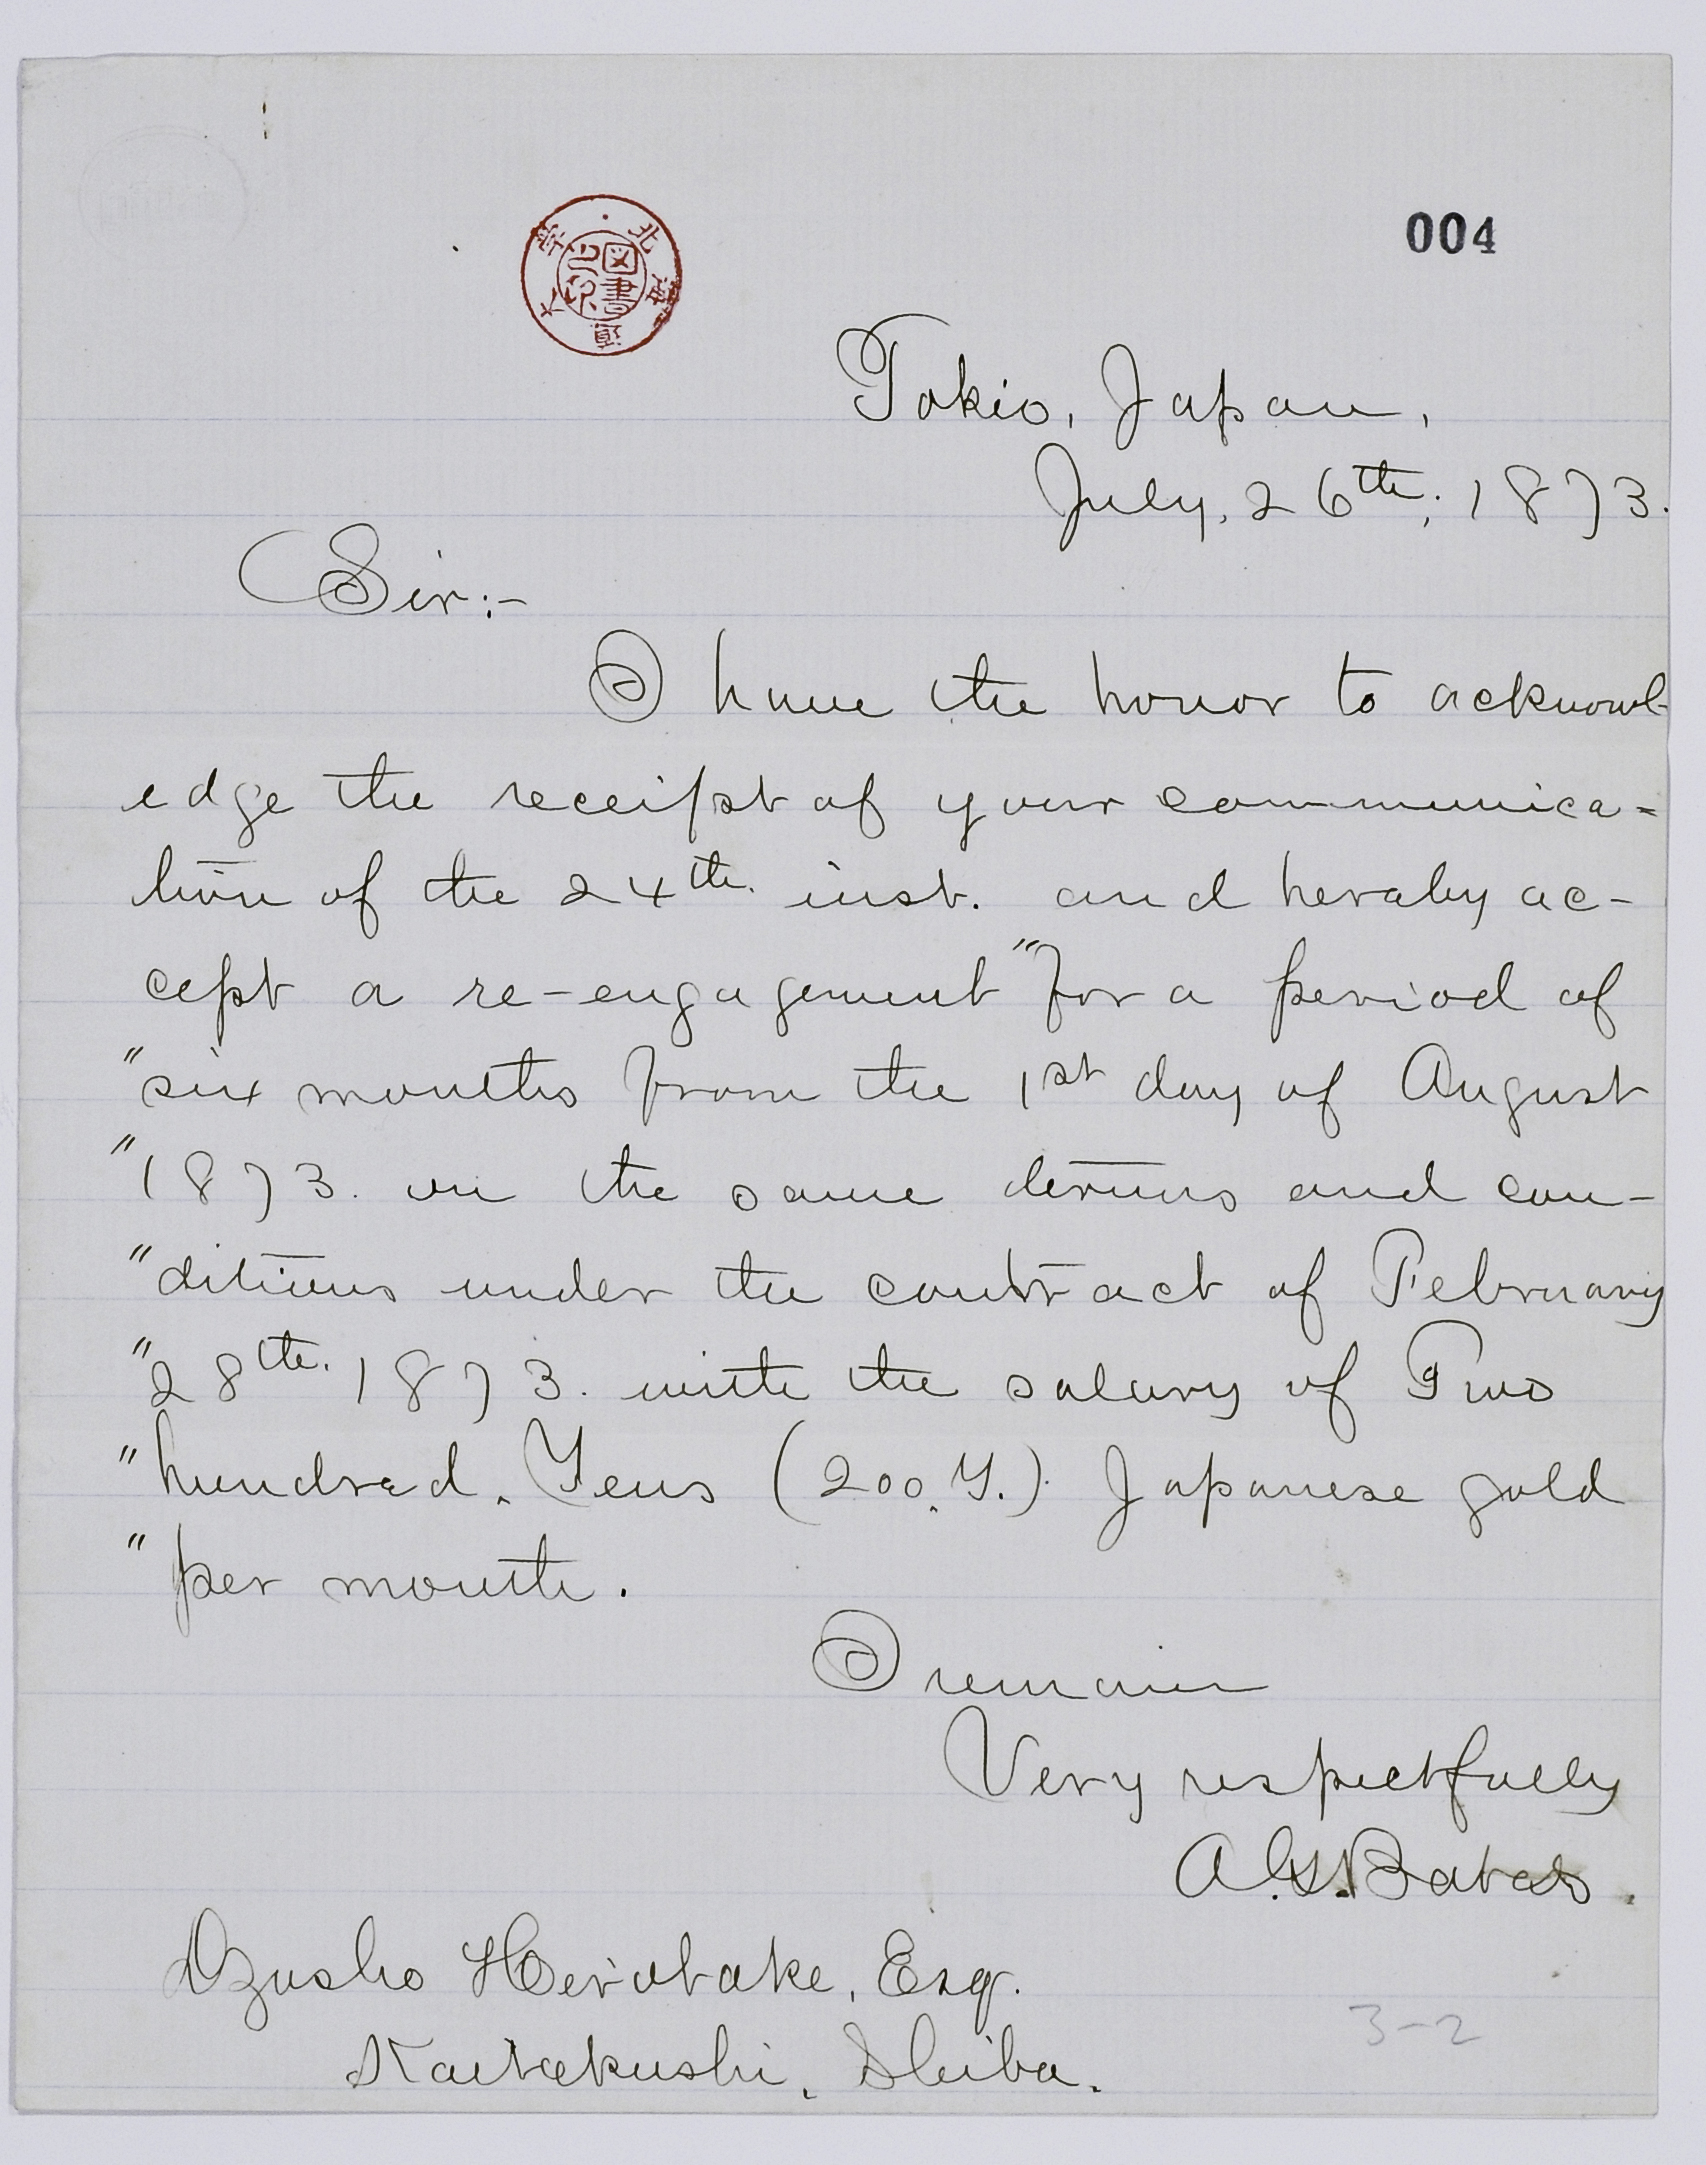 004
北海道大学
図書之印
Tokio, Japan,
July, 26th; 1873.
Sir:-
I have the honor to acknowl-
edge the receipt of your communica=
tion of the 24th. inst. and heraby ac-
cept a re-engagement "for a period of
"six months from the 1st day of August
"1873. on the same terms and con-
"ditions under the contract of February
"28th. 1873. with the salary of Two
"hundred. Yens (200.Y.). Japanese gold
"per month.
I remain
Very respectfully
A.G.Bates.
Dzusho Herotake, Esq.
Kaitakushi. Shiba.
3-2